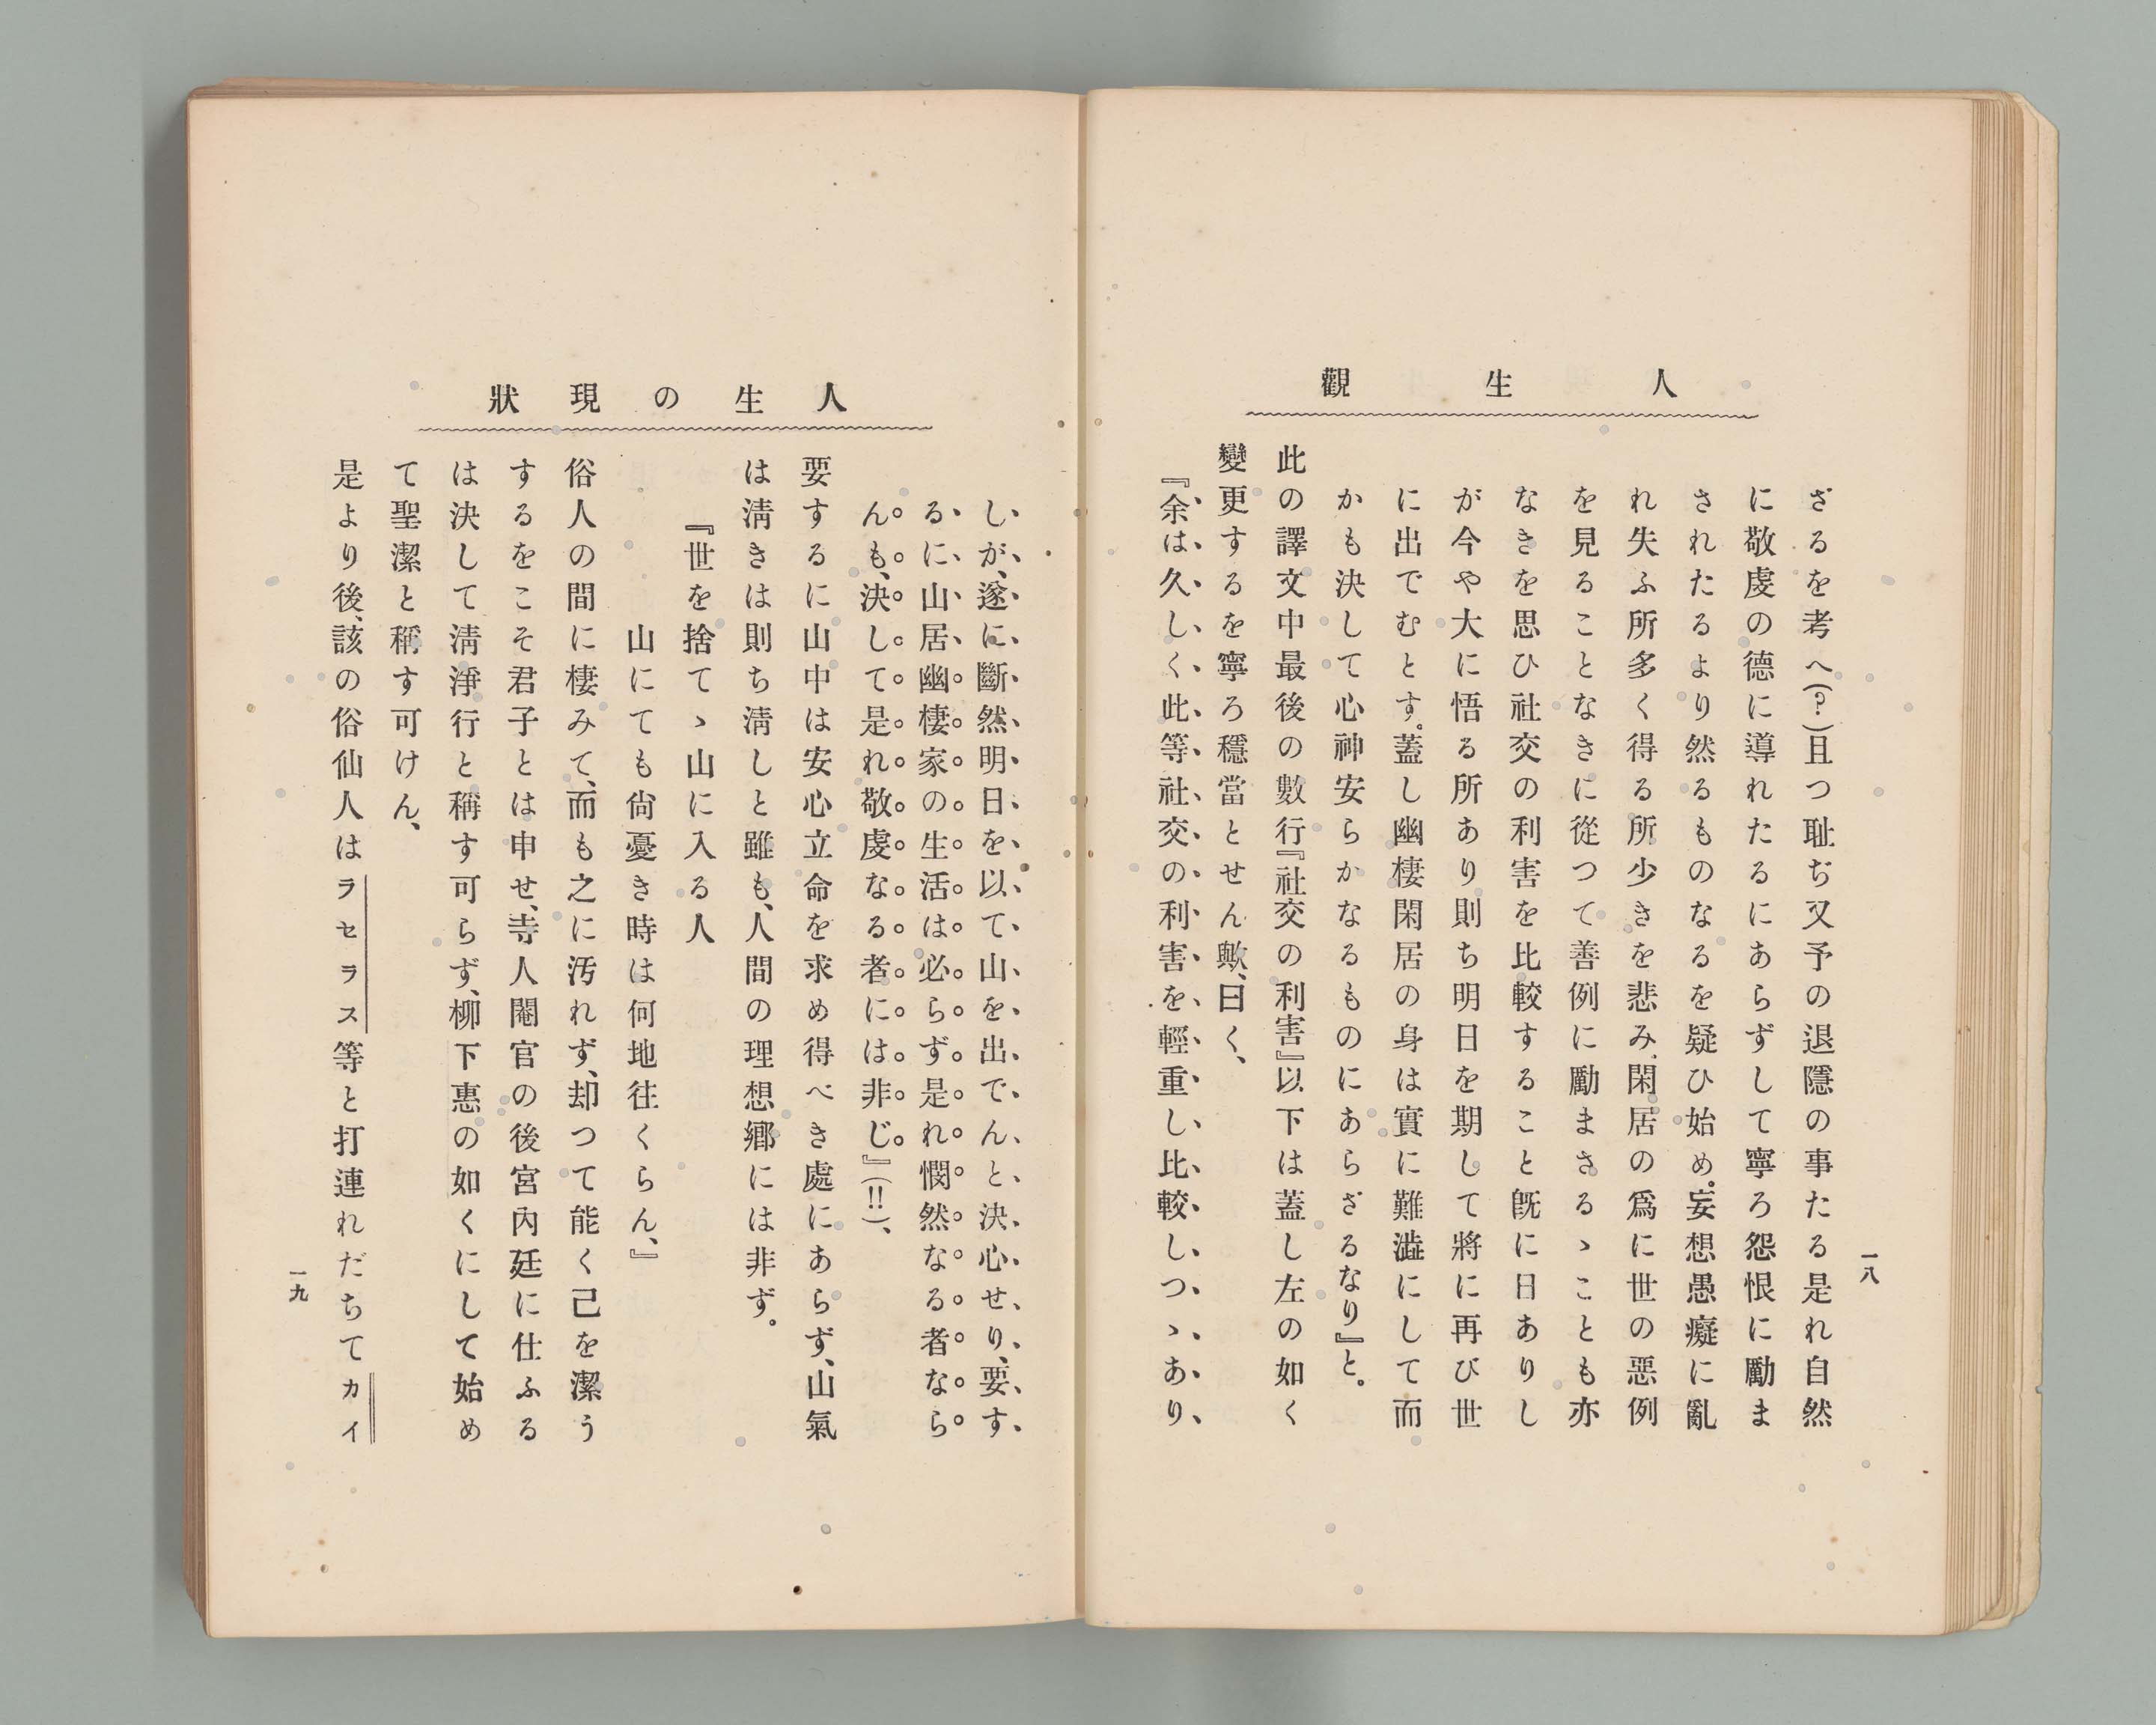 人生觀
一八
ざるを考へ(?)且つ耻ぢ又予の退隱の事たる是れ自然
に敬虔の德に導れたるにあらずして寧ろ怨恨に勵ま
されたるより然るものなるを疑ひ始め。妄想愚癡に亂
れ失ふ所多く得る所少きを悲み、閑居の爲に世の惡例
を見ることなきに從つて善例に勵まさるゝことも亦
なきを思ひ社交の利害を比較すること旣に日ありし
が今や大に悟る所あり則ち明日を期して將に再び世
に出でむとす。蓋し幽棲閑居の身は實に難澁にして而
かも決して心神安らかなるものにあらざるなり』と。
此の譯文中最後の數行『社交の利害』以下は蓋し左の如く
變更するを寧ろ穩當とせん歟、曰く、
『余は久しく此等社交の利害を輕重し比較しつゝあり
人生の現狀
しが、遂に斷然明日を以て山を出でんと決心せり、要す
るに山居幽棲家の生活は必らず是れ憫然なる者なら
んも、決して是れ敬虔なる者には非じ』(!!)、
要するに山中は安心立命を求め得べき處にあらず、山氣
は淸きは則ち淸しと雖も、人間の理想鄉には非ず。
『世を捨てゝ山に入る人
山にても尙憂き時は何地往くらん、』
俗人の間に棲みて、而も之に汚れず、却つて能く己を潔う
するをこそ君子とは申せ、寺人閹官の後宮內廷に仕ふる
は決して淸淨行と稱す可らず、柳下惠の如くにして始め
て聖潔と稱す可けん、
是より後、該の俗仙人はラセラス等と打連れだちてカイ
一九